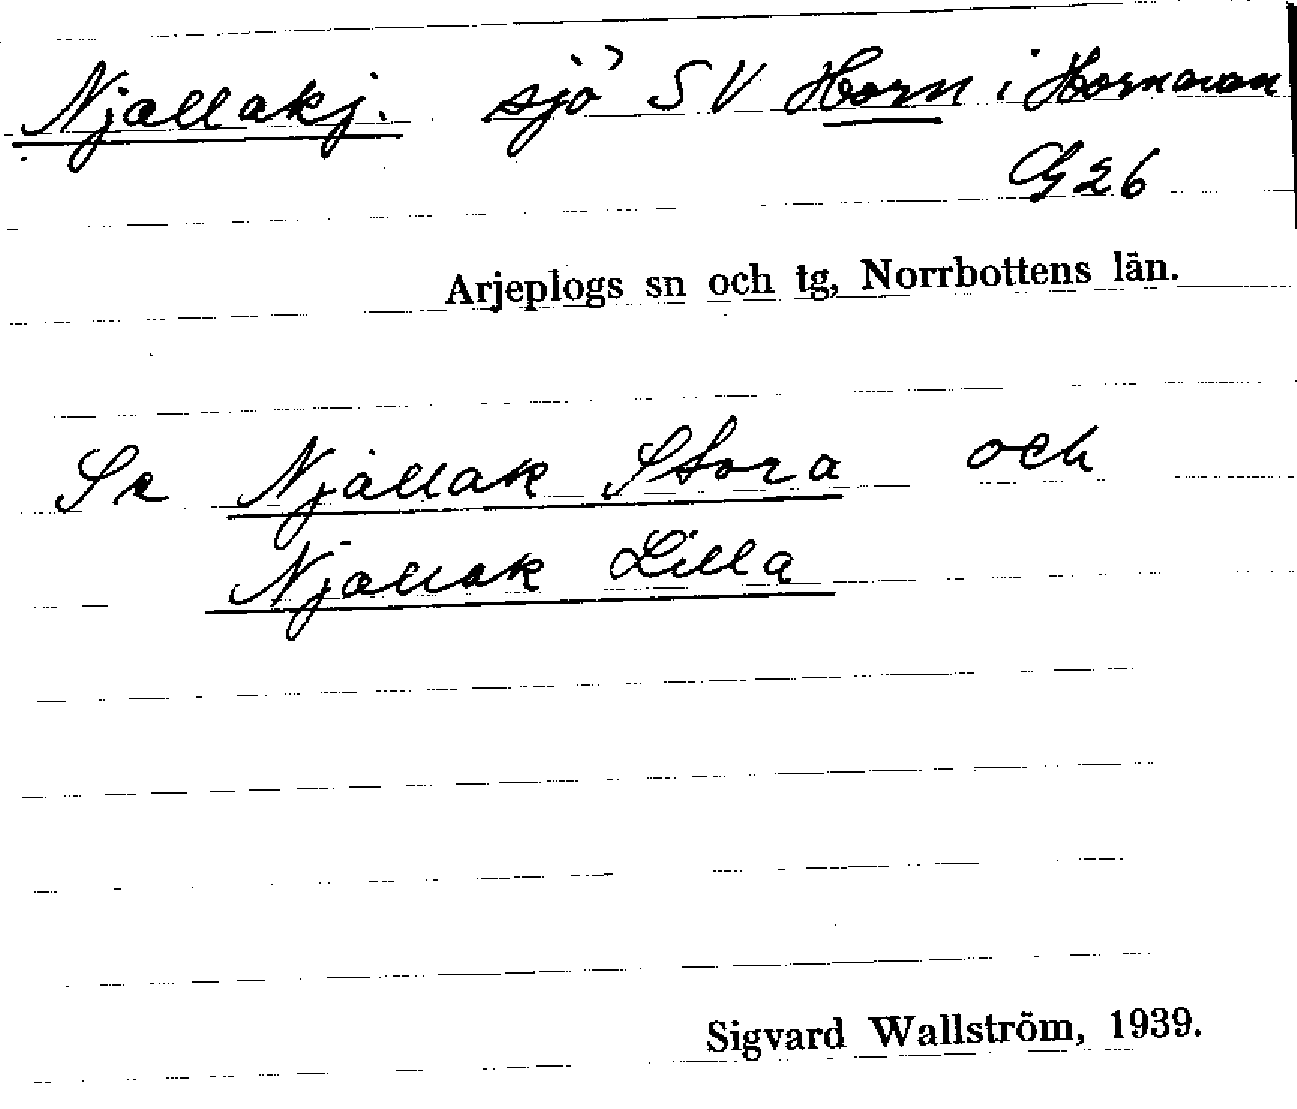 Njallakj. sjö SV Horn i Hornavan
G26
Arjeplogs sn och tg, Norrbottens län.
Se Njallak Stora och
Njallak Lilla
Sigvard Wallström, 1939.